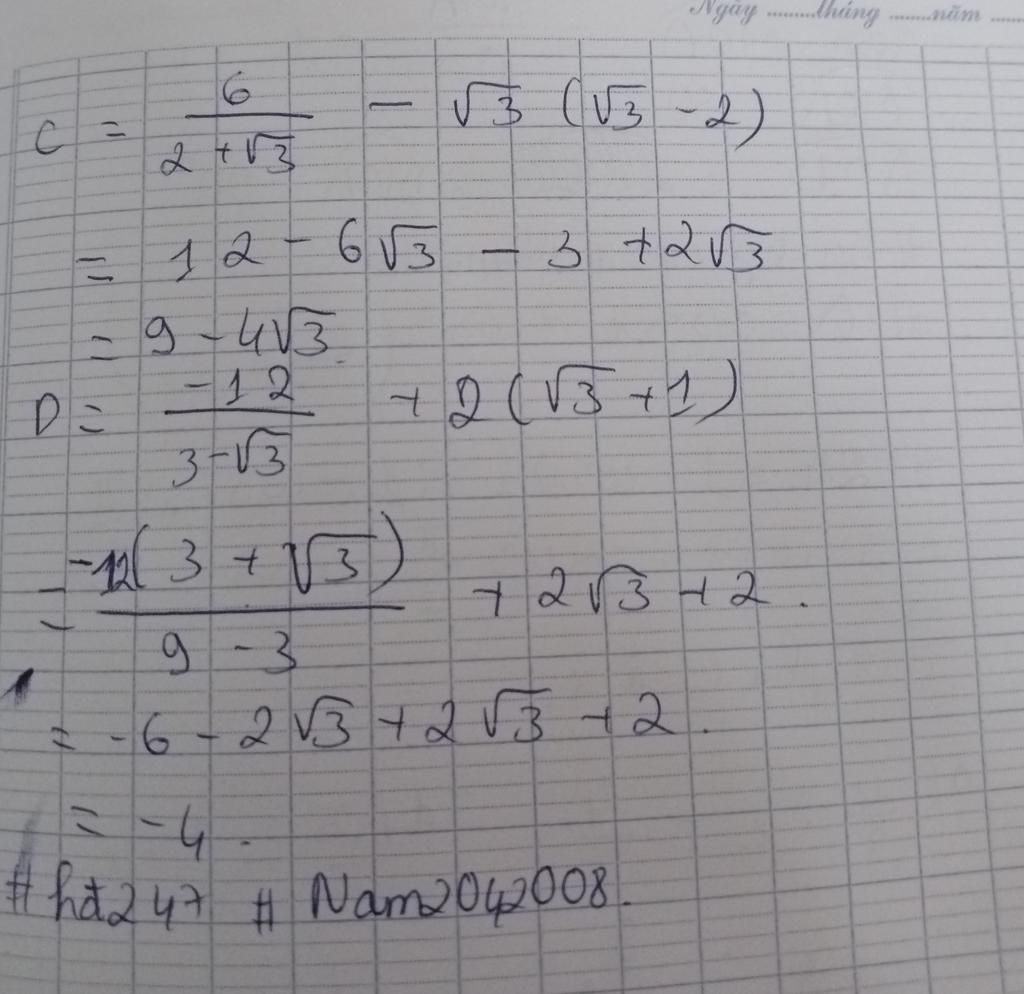 Ngày ........tháng ........năm ......
C = 6/(2 + √3) - √3 (√3 - 2)
= 12 - 6√3 - 3 + 2√3
= 9 - 4√3.
D = -12/(3 - √3) + 2(√3 + 1)
= -12(3 + √3)/(9 - 3) + 2√3 + 2.
= -6 - 2√3 + 2√3 + 2.
= -4.
# hđ247 # Nam2042008.